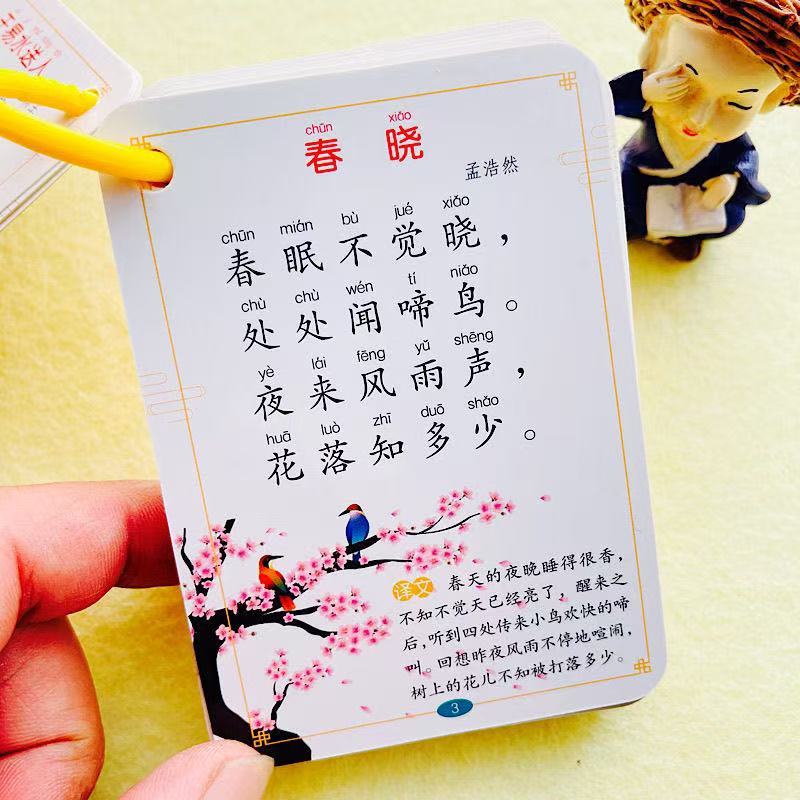 chūn xiǎo
春 晓
孟浩然
chūn mián bù jué xiǎo
春眠不觉晓，
chù chù wén tí niǎo
处处闻啼鸟。
yè lái fēng yǔ shēng
夜来风雨声，
huā luò zhī duō shǎo
花落知多少。
译文 春天的夜晚睡得很香，
不知不觉天已经亮了，醒来之
后，听到四处传来小鸟欢快的啼
叫。回想昨夜风雨不停地喧闹，
树上的花儿不知被打落多少。
3